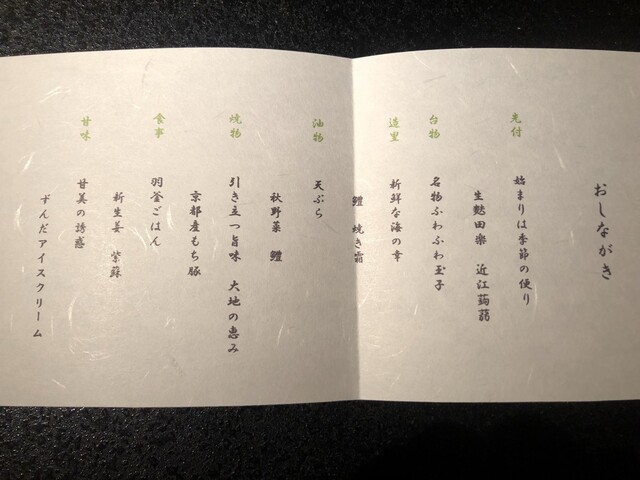 おしながき
先付
始まりは季節の便り
生麩田楽 近江蒟蒻
台物
名物ふわふわ玉子
造里
新鮮な海の幸
鱧 焼き霜
油物
天ぷら
秋野菜 鱧
焼物
引き立つ旨味 大地の恵み
京都産もち豚
食事
羽釜ごはん
新生姜 紫蘇
甘味
甘美の誘惑
ずんだアイスクリーム